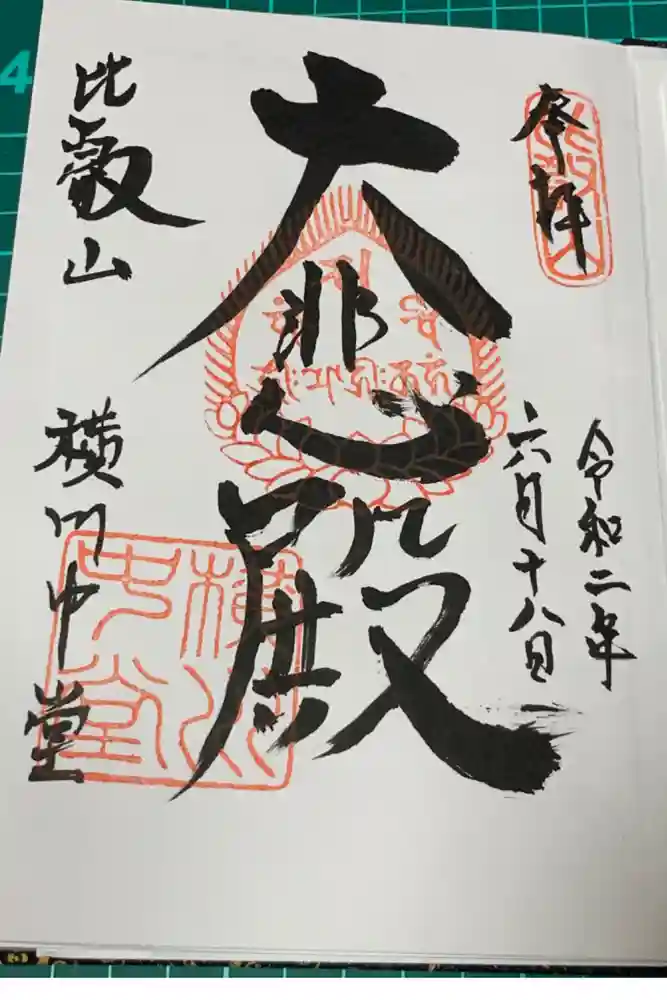 奉拝
令和二年
六月十八日
大悲殿
比叡山
横川中堂
横川
中堂
4